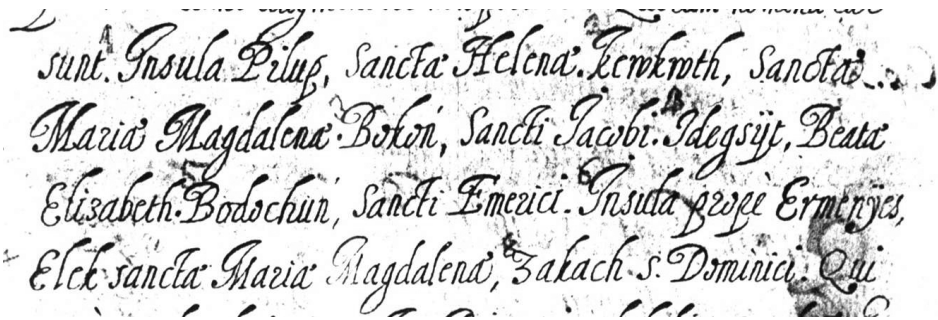 sunt. Insula Pilup, Sanctæ Helenæ. kewkwth, Sanctæ
Mariæ Magdalenæ. Bokon, Sancti Jacobi. Idegsÿt, Beatæ
Elizabeth. Bodochun, Sancti Emerici. Insula propè Ermenÿes,
Elek sanctæ Mariæ Magdalenæ, Zakach s. Dominici. Qui